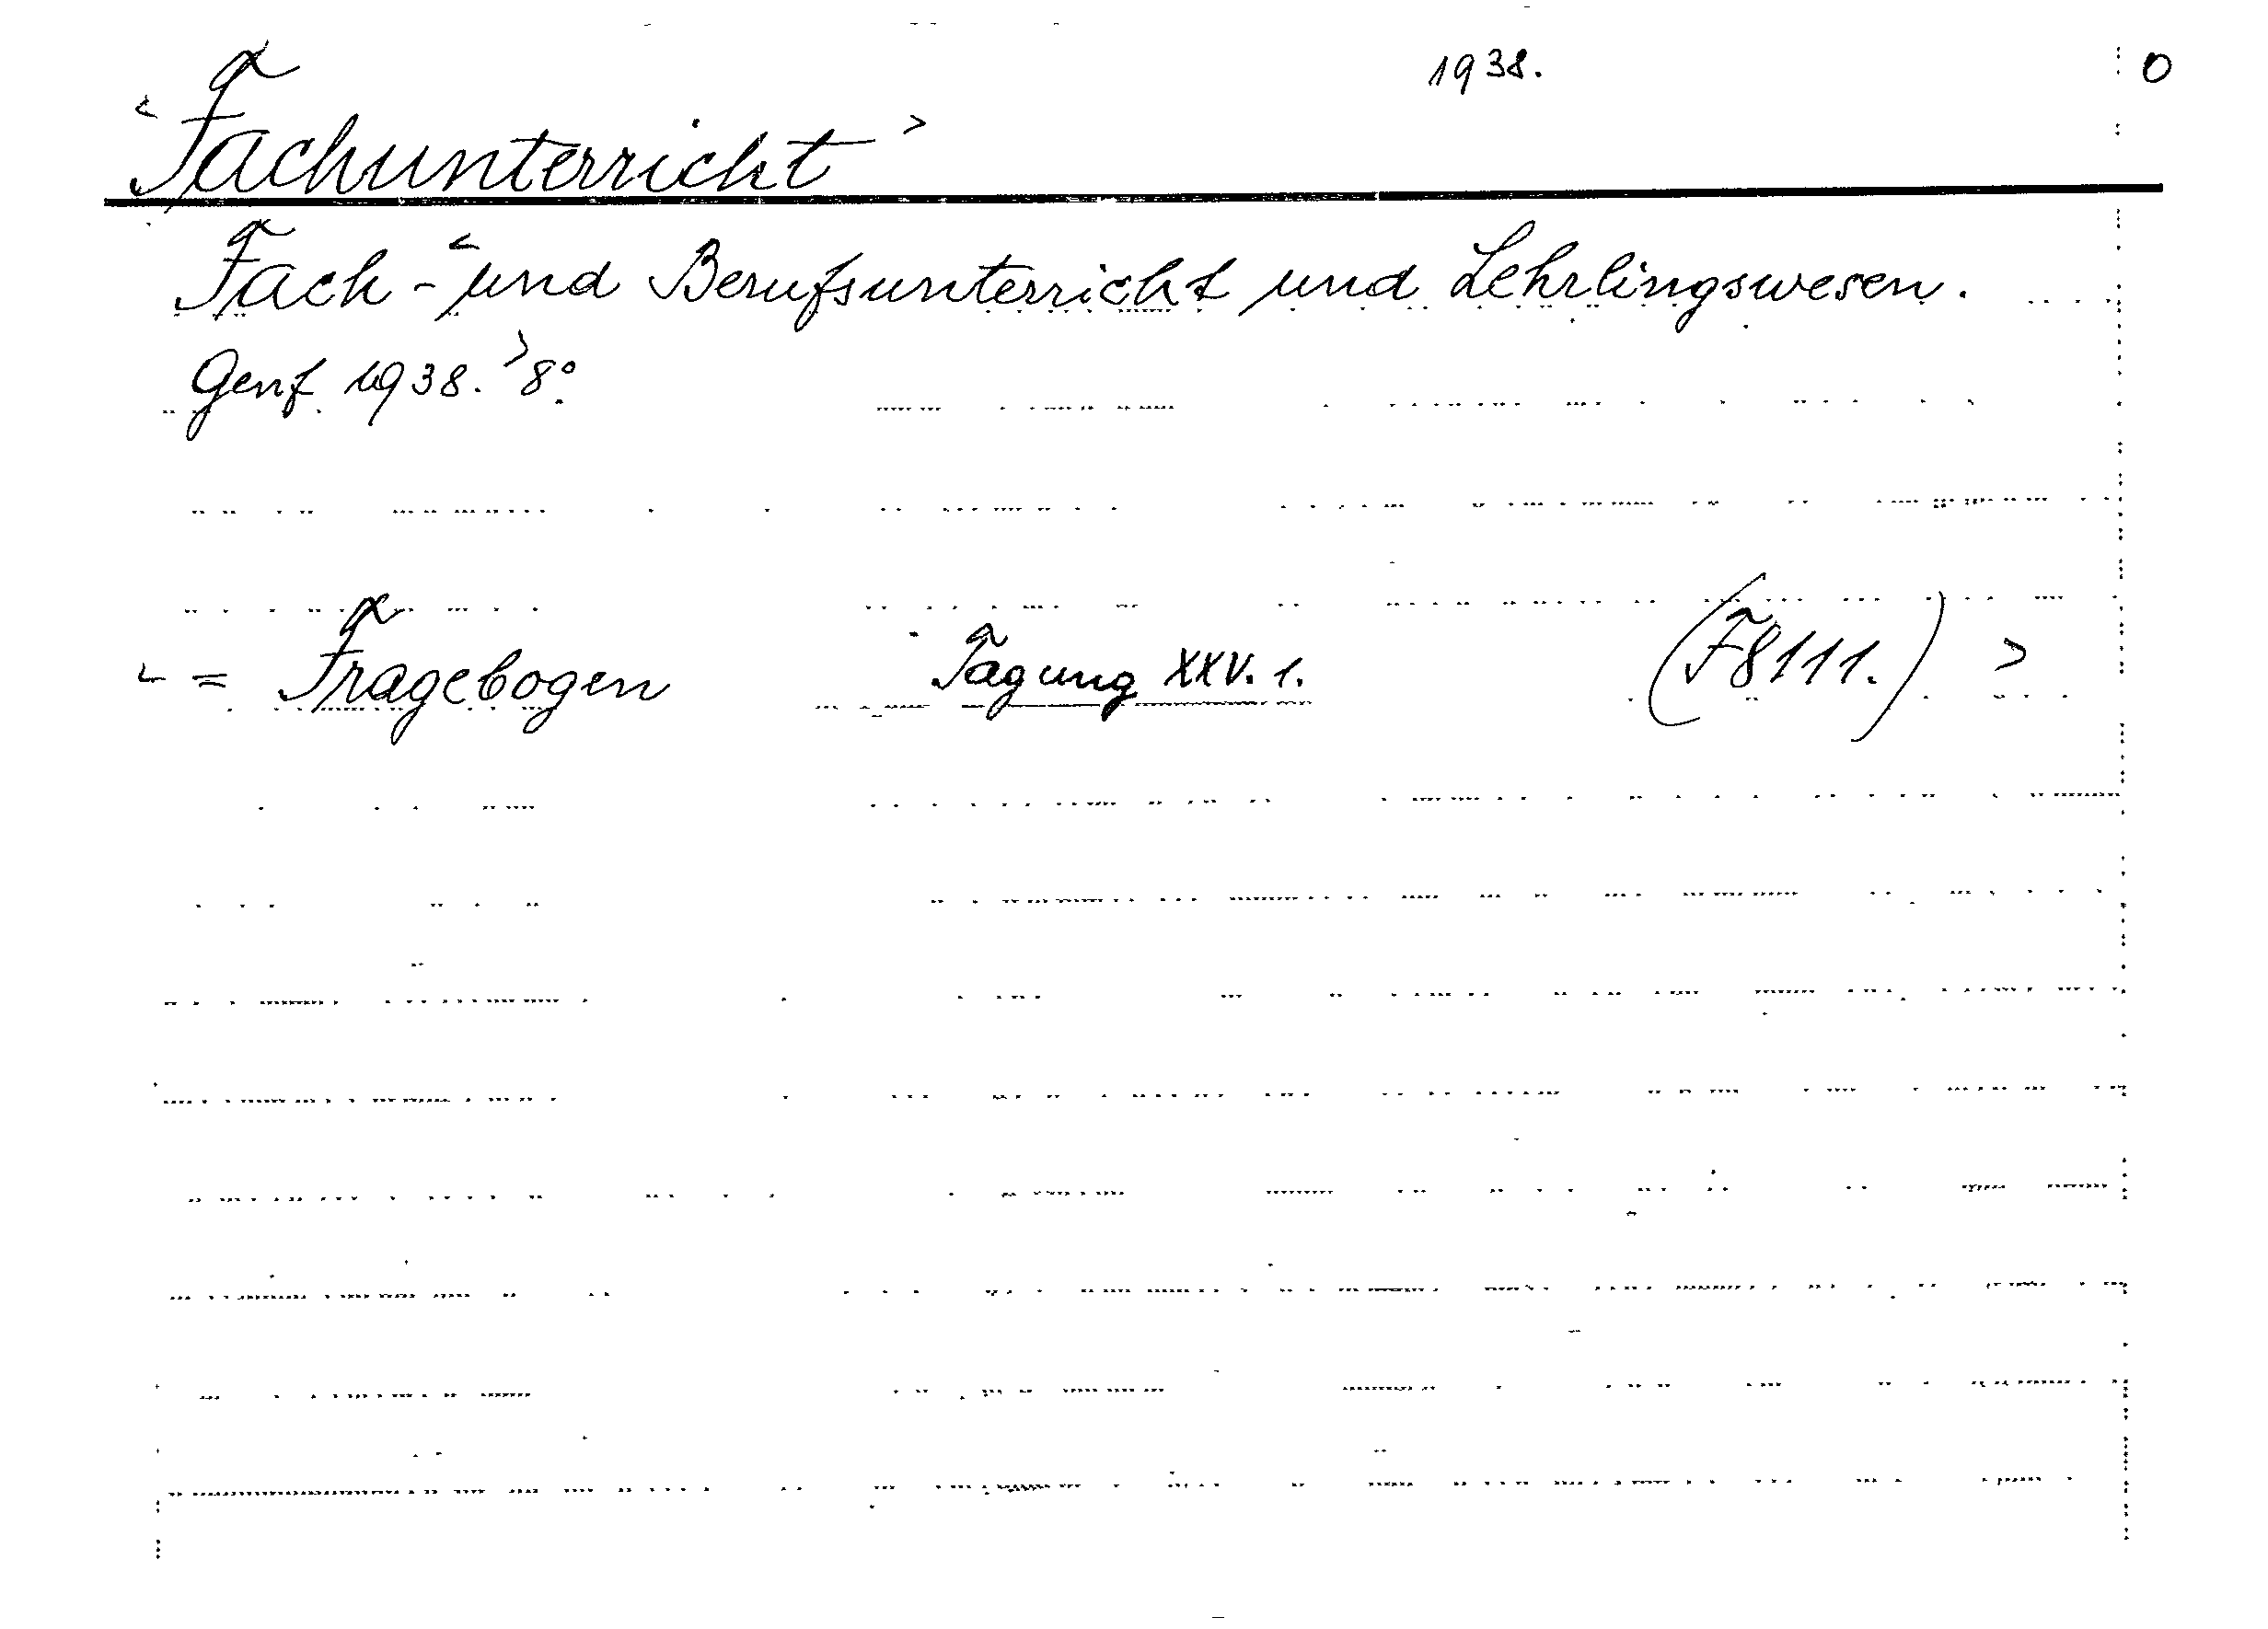 1938. 0
< Fachunterricht >
Fach- < und Berufsunterricht und Lehrlingswesen.
Genf 1938. > 8°.
< = Fragebogen Tagung XXV. 1. (F8111.) >